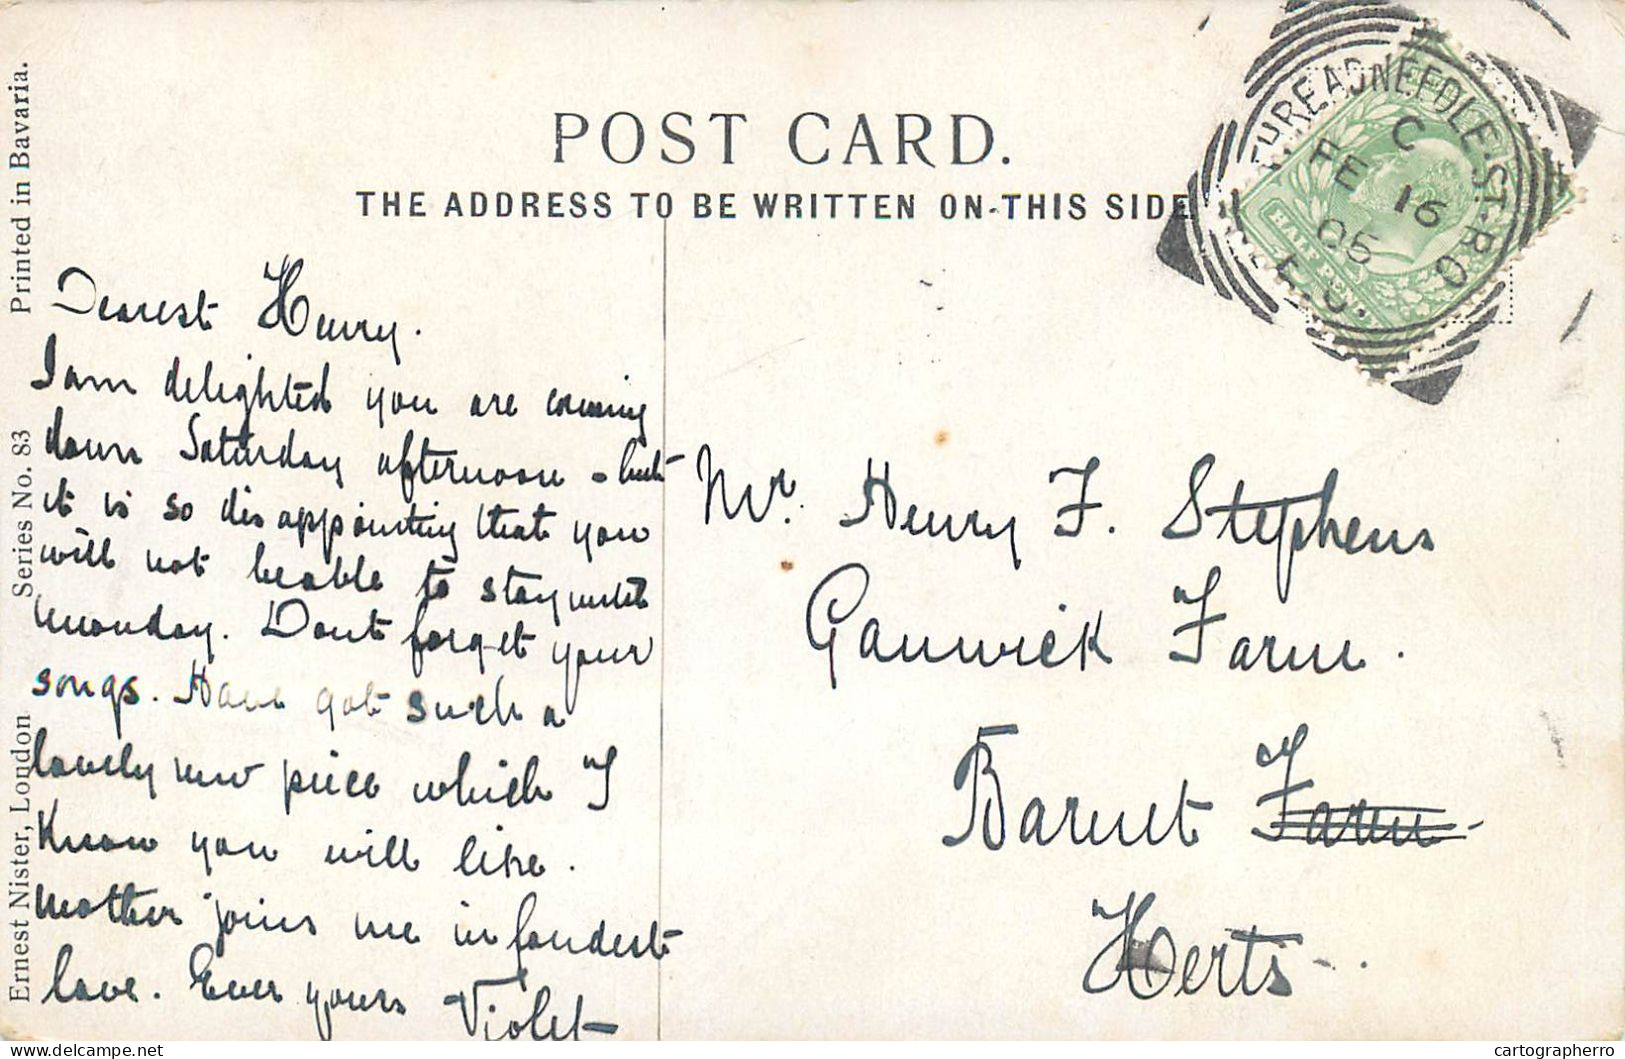 POST CARD.
THE ADDRESS TO BE WRITTEN ON THIS SIDE
THREADNEEDLE. ST. B.O
C
FE 16
05
E.C.
HALF PENNY
Printed in Bavaria.
Series No. 83
Ernest Nister, London
Dearest Henry.
I am delighted you are coming
down Saturday afternoon - but
it is so disappointing that you
will not be able to stay until
monday. Dont forget your
songs. Have got such a
lovely new piece which I
know you will like.
Mother joins me in fondest
love. Ever yours Violet
Mr. Henry F. Stephens
Ganwick Farm.
Barnet Farm
Herts.
cartographerro